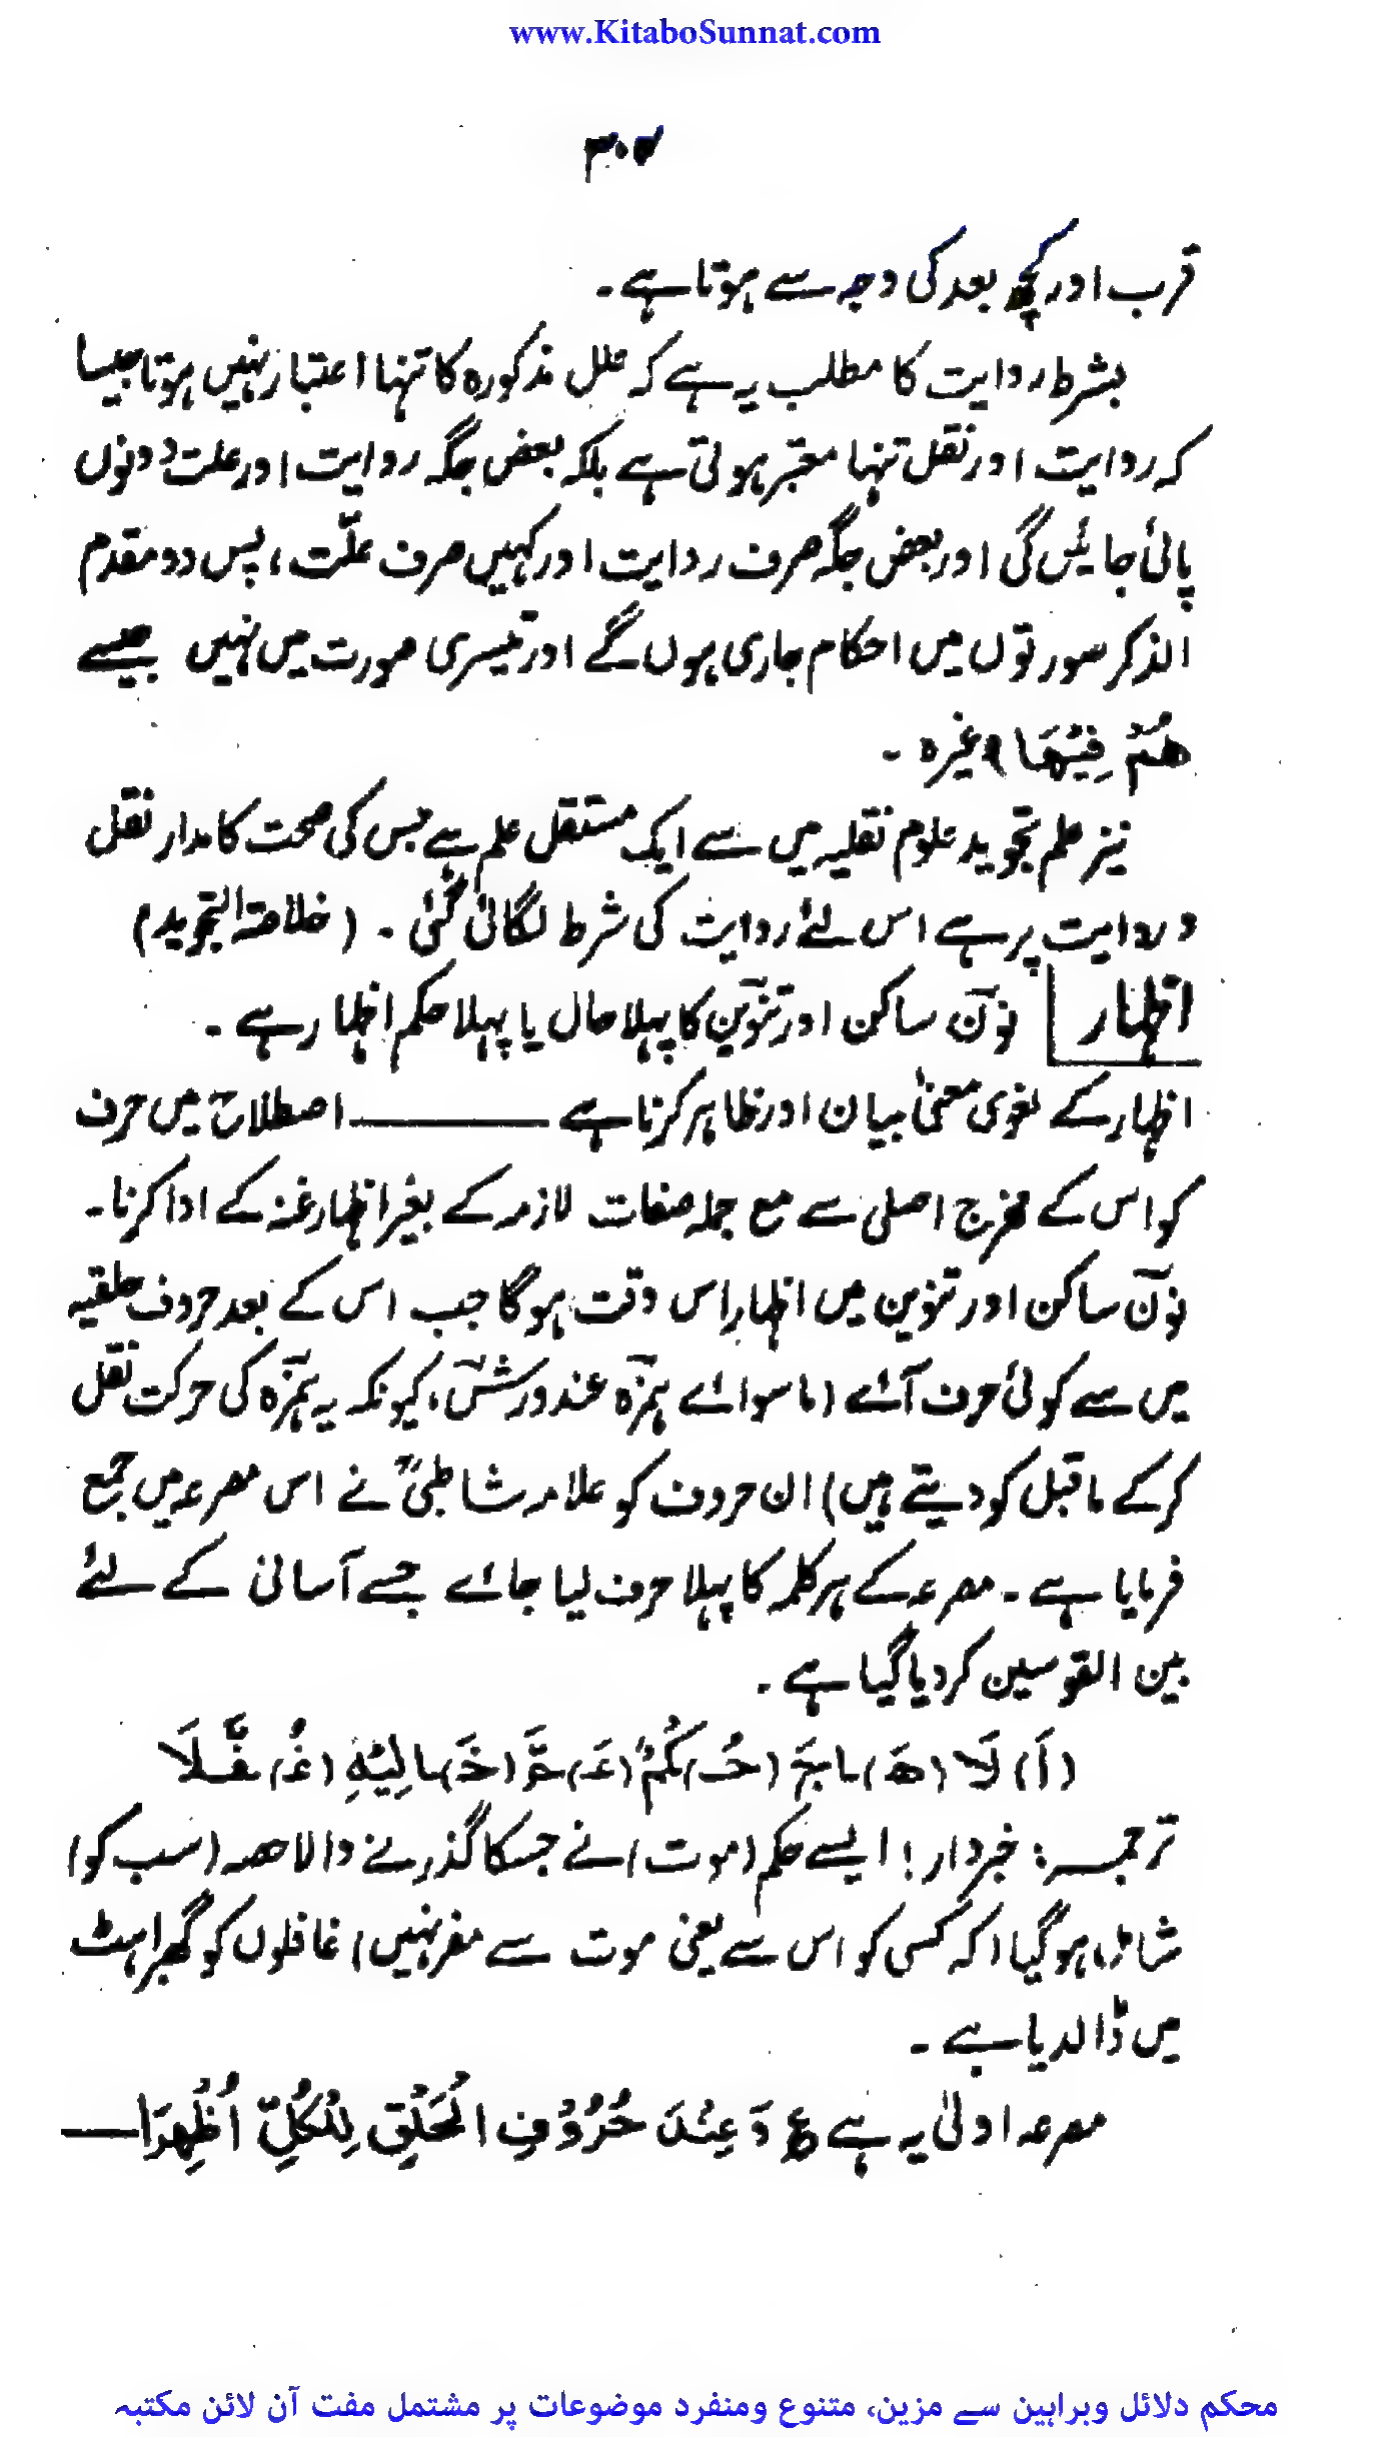 www.KitaboSunnat.com
قرب اور کچھ بعد کی وجہ سے ہوتا ہے۔
بشرط روایت کا مطلب یہ ہے کہ علل مذکورہ کا تنہا اعتبار نہیں ہوتا جیسا
کہ روایت اور نقل تنہا معتبر ہوتی ہے بلکہ بعض جگہ روایت اور علت دونوں
پائی جائیں گی اور بعض جگہ صرف روایت اور کہیں صرف علّت، پس دو مقدم
الذکر صورتوں میں احکام جاری ہوں گے اور تیسری صورت میں نہیں جیسے
هُمْ فِيْهَا وغیرہ۔
نیز علم تجوید علوم نقلیہ میں سے ایک مستقل علم ہے جس کی صحت کا مدار نقل
و روایت پر ہے اس لئے روایت کی شرط لگائی گئی۔ (خلاصۃ التجوید)
اظہار نونؔ ساکن اور تنوینؔ کا پہلا حال یا پہلا حکم اظہار ہے۔
اظہار کے لغوی معنیٰ بیان اور ظاہر کرنا ہے ——— اصطلاح میں حرف
کو اس کے مخرج اصلی سے مع جملہ صفات لازمہ کے بغیر اظہار غنہ کے ادا کرنا۔
نونؔ ساکن اور تنوین میں اظہار اس وقت ہوگا جب اس کے بعد حروف حلقیہ
میں سے کوئی حرف آئے (ماسوائے ہمزہؔ عند ورشؔ، کیونکہ یہ ہمزہؔ کی حرکت نقل
کرکے ماقبل کو دیتے ہیں) ان حروف کو علامہ شاطبیؒ نے اس مصرعہ میں جمع
فرمایا ہے۔ مصرعہ کے ہر کلمہ کا پہلا حرف لیا جائے جسے آسانی کے لئے
بین القوسین کردیا گیا ہے۔
(اَ) لَا (هَ) اجَ (حُ) كْمٌ (عَ) مَّ (خَ) الِيْهِ (غُ) فَّلَا
ترجمہ: خبردار! ایسے حکم (موت) نے جسکا گذرنے والا حصہ (سب کو)
شامل ہوگیا (کہ کسی کو اس سے یعنی موت سے مفر نہیں) غافلوں کو گھبراہٹ
میں ڈالدیا ہے۔
مصرعہ اولیٰ یہ ہے ع وَعِنْدَ حُرُوْفِ الْحَلْقِ لِلْكُلِّ اُظْهِرَا ——
محکم دلائل وبراہین سے مزین، متنوع ومنفرد موضوعات پر مشتمل مفت آن لائن مکتبہ